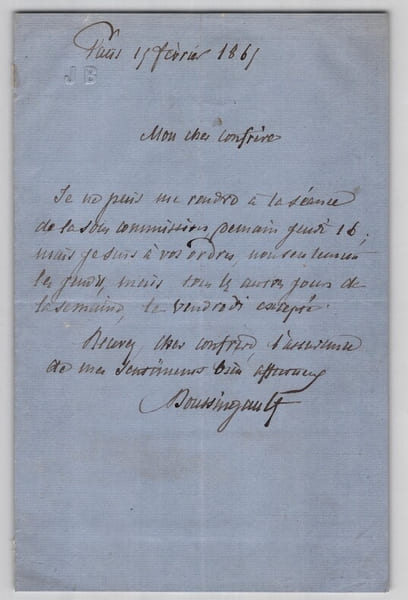 Paris 15 février 1865
JB
Mon cher confrère
Je ne puis me rendre à la séance
de la sous commission, demain jeudi 16,
mais je suis à vos ordres, non seulement
les jeudis, mais tous les autres jours de
la semaine, le vendredi excepté.
Recevez, cher confrère, l'assurance
de mes sentiments bien affectueux
Boussingault